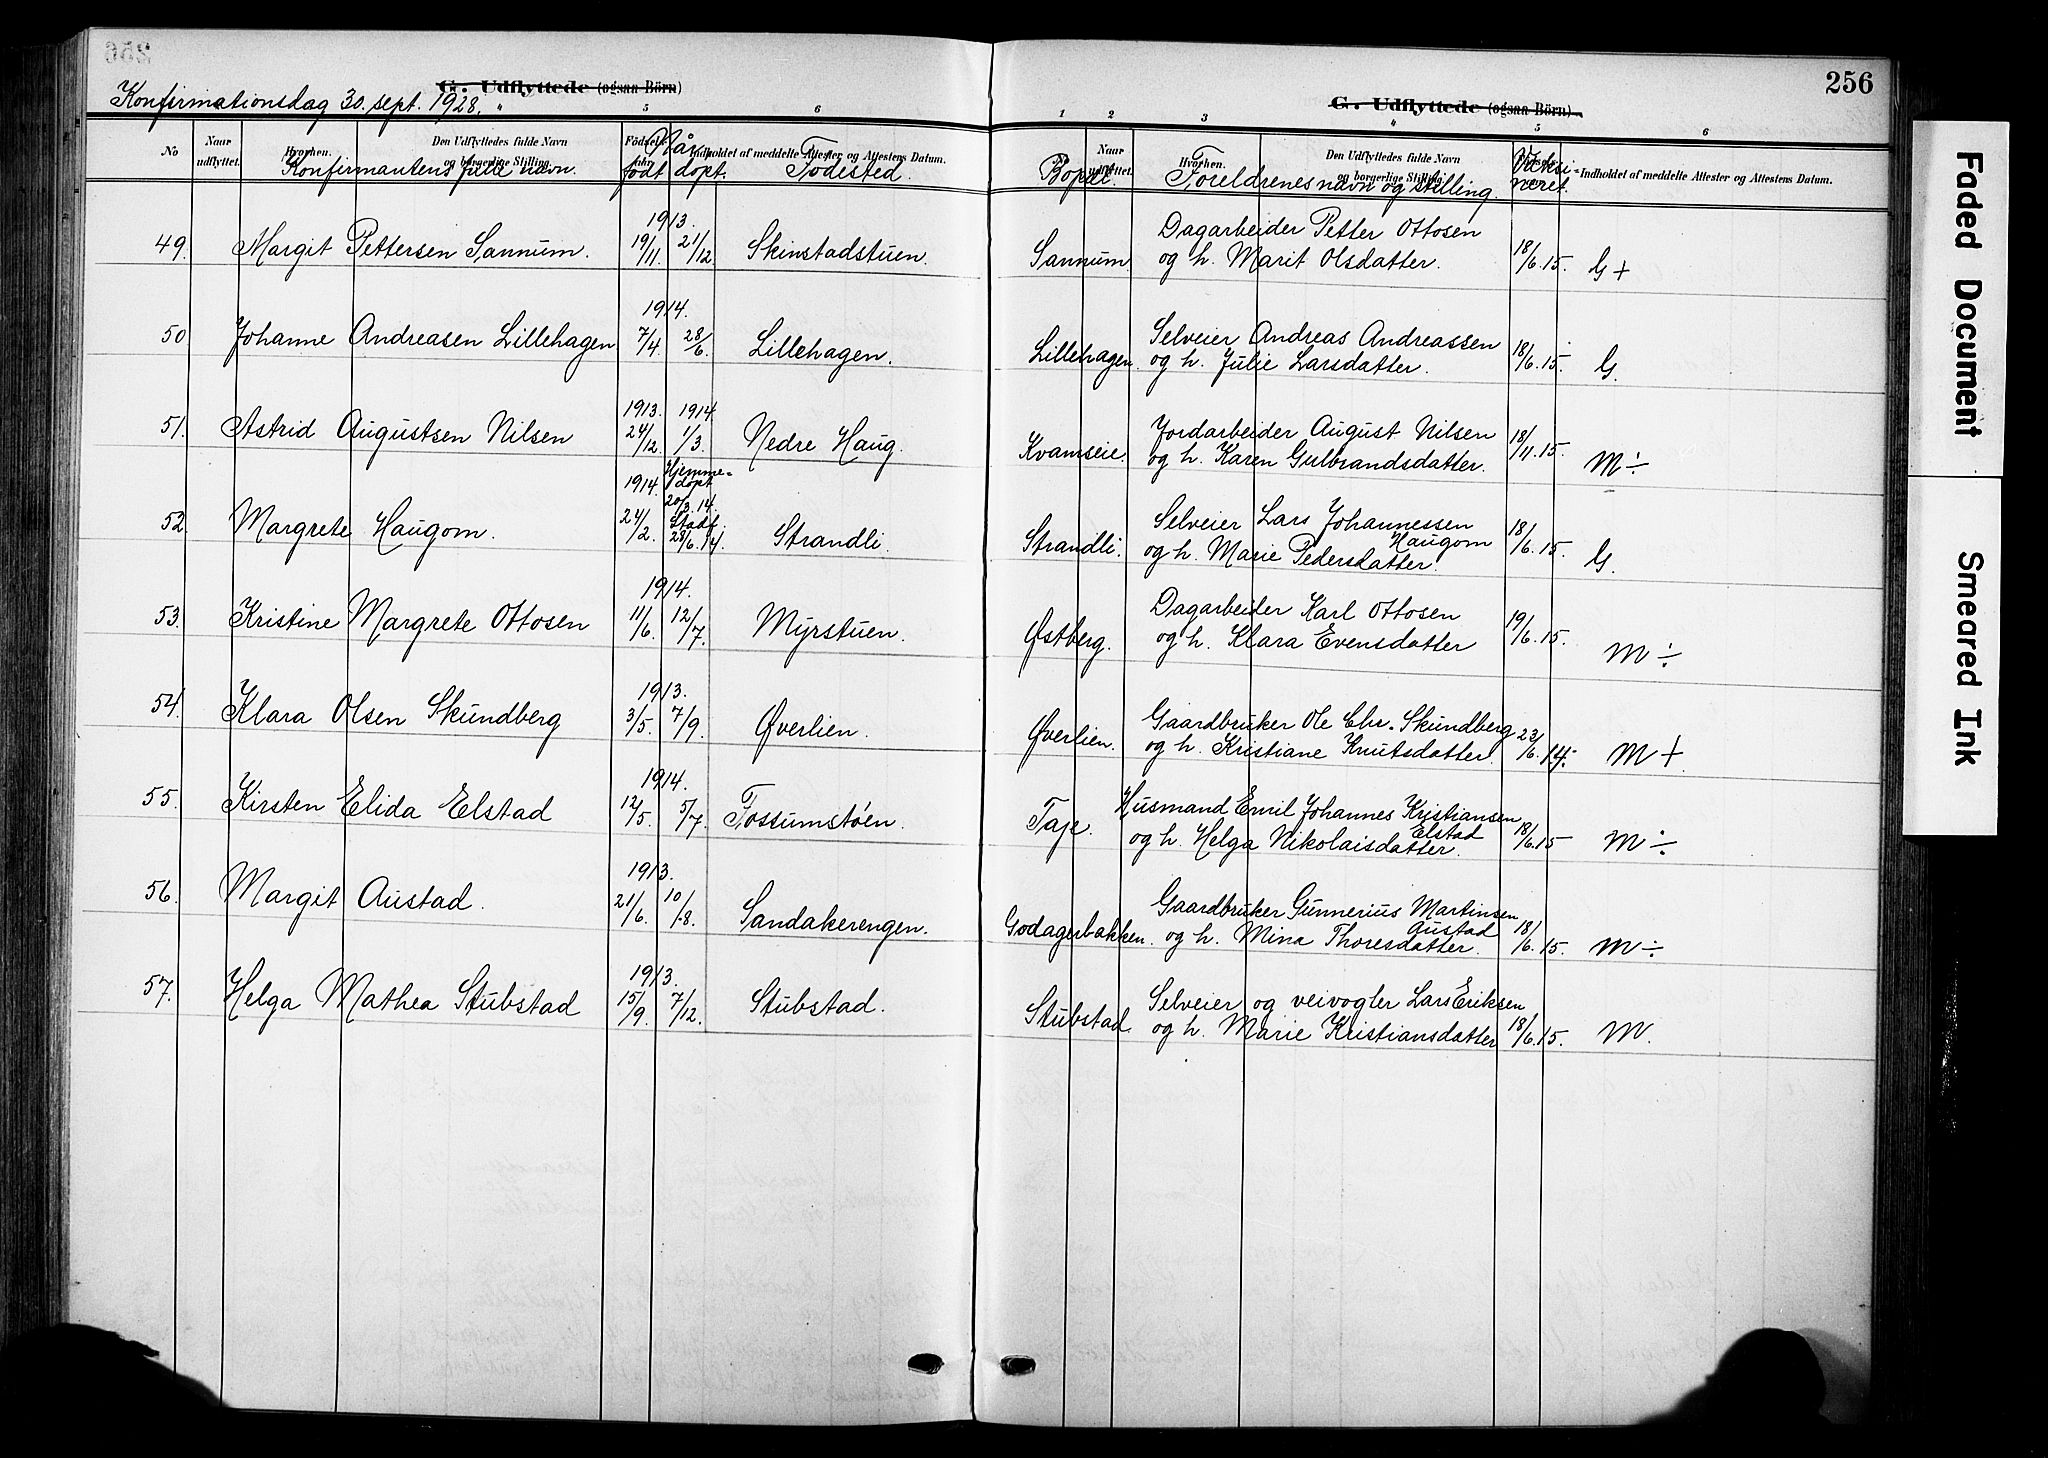 256
G. Udflyttede (ogsaa Börn)
Konfirmationsdag 30. sept. 1928.
5 6
No Naar udflyttet. Hvorhen. Den Udflyttedes fulde Navn og borgerlige Stilling. Fødsels- Indholdet af meddelte Attester og Attestens Datum.
Konfirmantens fulle navn. Når født døpt. Fødested.
49. Margit Pettersen Sannum. 1913. 19/11. 21/12 Skinstadstuen.
50 Johanne Andreasen Lillehagen 1914. 7/4. 28/6. Lillehagen.
51. Astrid Augustsen Nilsen 1913. 24/12. 1914. 1/3. Nedre Haug.
52. Margrete Haugom. 1914. 24/2. Hjemme-døpt 20/3.14. Stadf. 28/6.14. Strandli.
53. Kristine Margrete Ottosen 1914. 11/6. 12/7. Myrstuen.
54. Klara Olsen Skundberg 1913. 3/5. 7/9. Øverlien.
55. Kirsten Elida Elstad 1914. 12/5. 5/7. Fossumstøen.
56. Margit Austad. 1913. 21/6. 10/8. Sandakerengen.
57. Helga Mathea Stubstad 1913. 15/9. 7/12. Stubstad.
256
G. Udflyttede (ogsaa Börn)
1 2 3 4 5 6
Naar udflyttet. Hvorhen. Den Udflyttedes fulde Navn og borgerlige Stilling. Indholdet af meddelte Attester og Attestens Datum.
Bopæl. Foreldrenes navn og stilling. Vaksi-neret.
Dagarbeider Petter Ottosen
Sannum. og h. Marit Olsdatter. 18/6.15. G +
Selveier Andreas Andreassen
Lillehagen. og h. Julie Larsdatter. 18/6.15. G.
Jordarbeider August Nilsen
Kvamseie. og h. Karen Gulbrandsdatter. 18/11.15. M ÷
Selveier Lars Johannessen Haugom
Strandli. og h. Marie Pedersdatter. 18/6.15. G.
Dagarbeider Karl Ottosen
Østberg. og h. Klara Evensdatter 19/6.15. M ÷
Gaardbruker Ole Chr. Skundberg
Øverlien. og h. Kristiane Knutsdatter. 23/6.14. M +
Husmand Emil Johannes Kristiansen Elstad
Taje. og h. Helga Nikolaisdatter. 18/6.15 M ÷
Gaardbruker Gunnerius Martinsen Austad
Godagerbakken. og h. Mina Thoresdatter. 18/6.15. M ÷
Selveier og veivogter Lars Eriksen
Stubstad. og h. Marie Kristiansdatter 18/6.15. M.
Faded Document
Smeared Ink